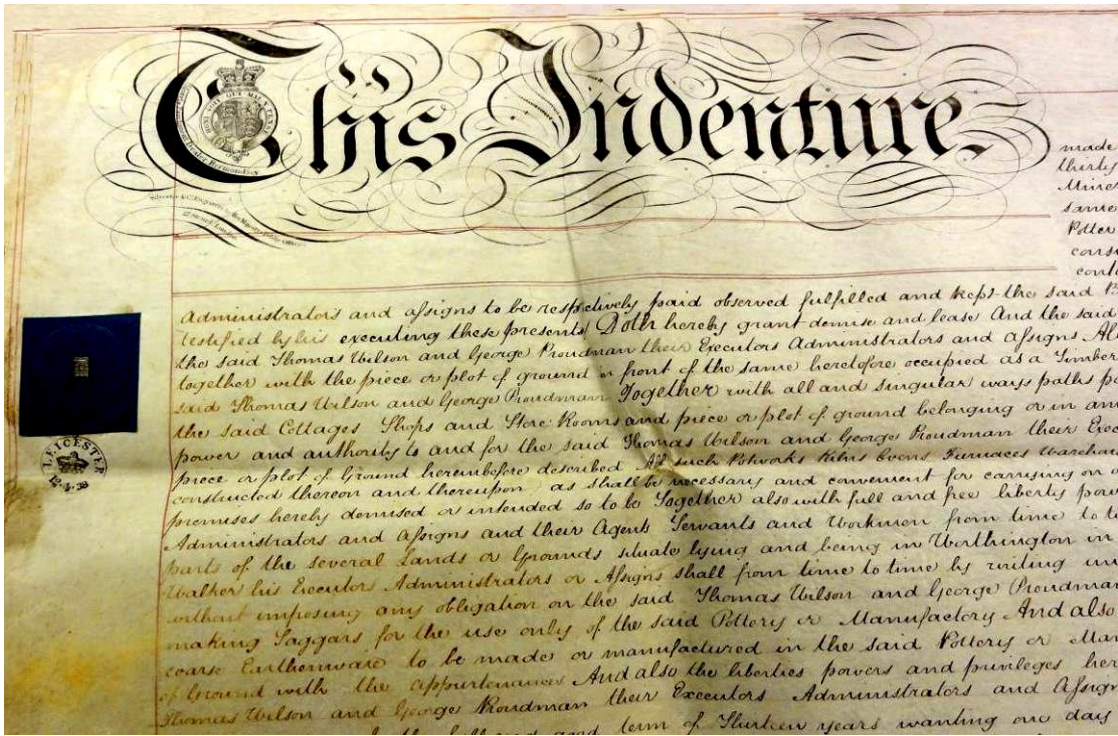 This Indenture
made
thirty
Miner
same
Potter
Administrators and assigns to be respectively paid observed fulfilled and kept the said
testified by his executing these presents Doth hereby grant demise and lease And the said
the said Thomas Wilson and George Proudman their Executors Administrators and Assigns
together with the piece or plot of ground in front of the same heretofore occupied as a Timber
said Thomas Wilson and George Proudman Together with all and singular ways paths
the said Cottages Shops and Store Rooms and piece or plot of ground belonging or in
power and authority to and for the said Thomas Wilson and George Proudman their
piece or plot of Ground hereinbefore described All such Potworks Kilns Ovens Furnaces
constructed thereon and thereupon as shall be necessary and convenient for carrying on
premises hereby demised or intended so to be Together also with full and free liberty
Administrators and Assigns and their Agents Servants and Workmen from time to
parts of the several Lands or Grounds situate lying and being in Worthington in
Walker his Executors Administrators or Assigns shall from time to time by writing
without imposing any obligation on the said Thomas Wilson and George Proudman
making Saggars for the use only of the said Pottery or Manufactory And also
coarse Earthenware to be made or manufactured in the said Pottery or
of Ground with the appurtenances And also the liberties powers and privileges
Thomas Wilson and George Proudman their Executors Administrators and
and term of Thirteen years wanting one day
LEICESTER